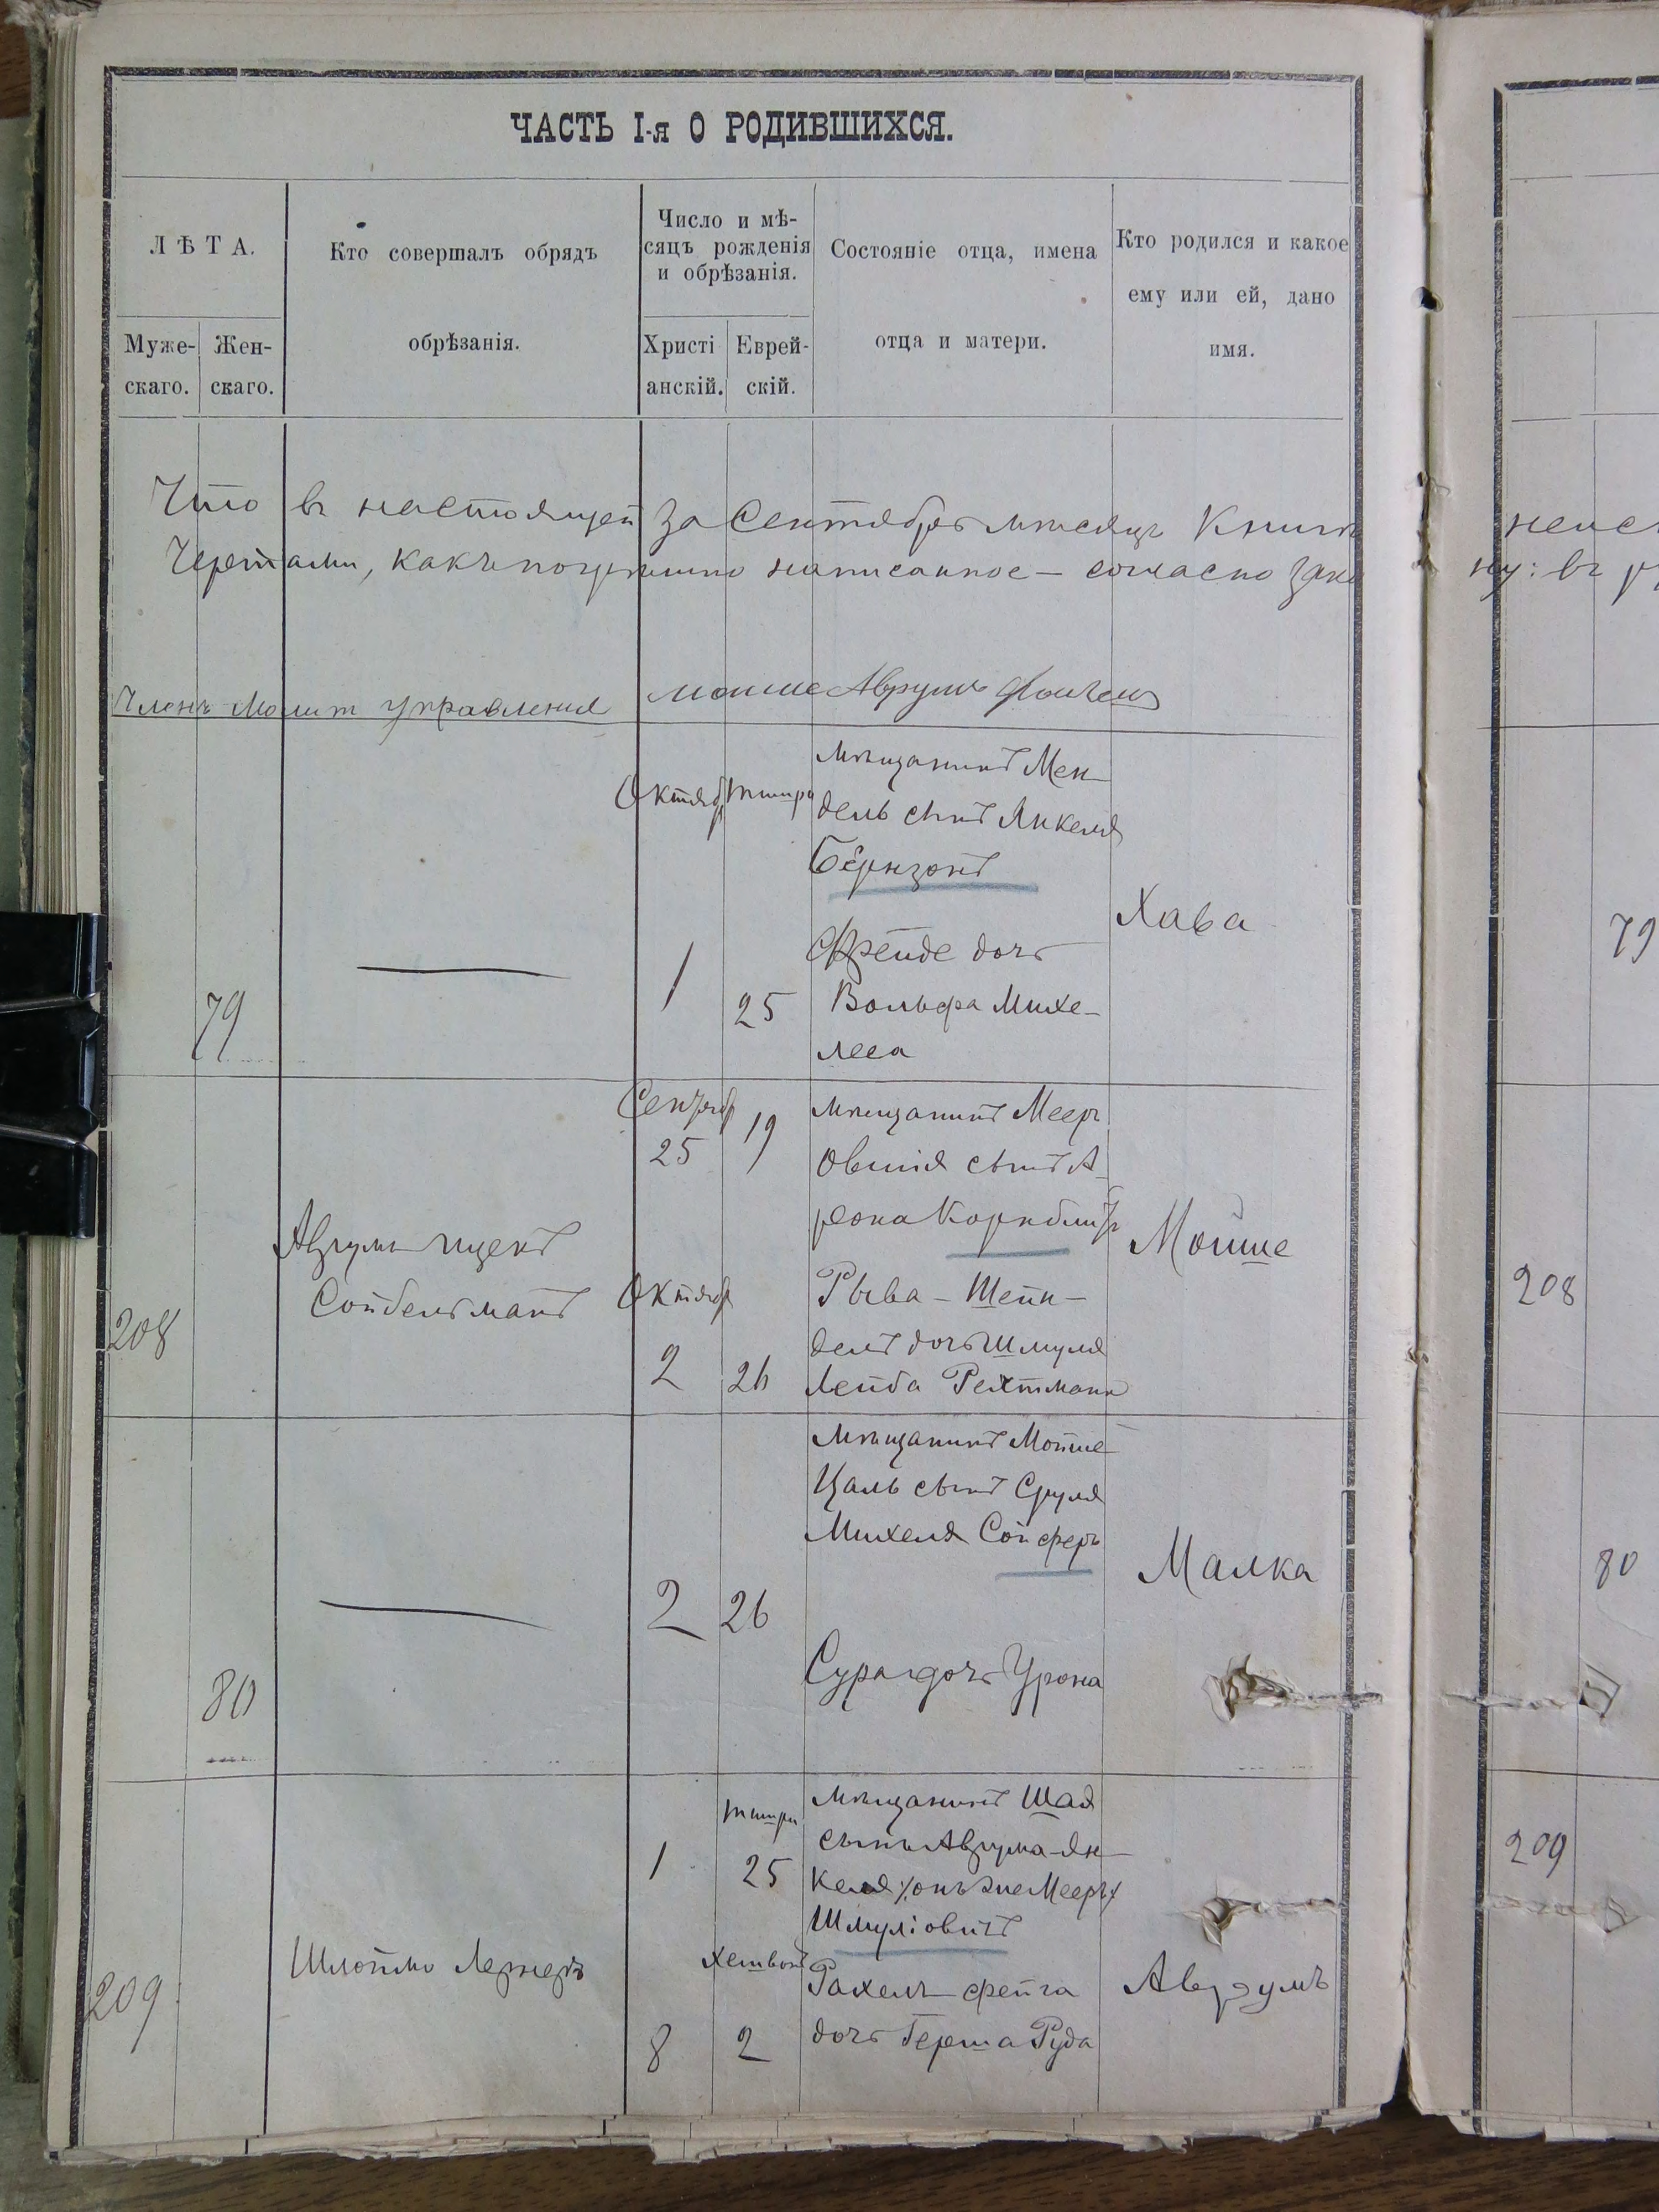 ЧАСТЬ I-я О РОДИВШИХСЯ.
ЛѢТА.
Муже-
скаго.
Жен-
скаго.
Кто совершалъ обрядъ
обрѣзанія.
Число и мѣ-
сяцъ рожденія
и обрѣзанія.
Христі
анскій.
Еврей-
скій.
Состояніе отца, имена
отца и матери.
Кто родился и какое
ему или ей, дано
имя.
Что въ настоящей за Сентябрь мѣсяцъ Книгѣ
Чертами, какъ написанное — согласно зако
ну: въ
Членъ Молит Управленія Мойше Аврумъ
79
Октяб
1
Тишри
25
мѣщанинъ Мен-
дель сынъ Янкеля
Бернзонъ
Фрейде дочь
Вольфа Михе-
леса
Хава
79
208
Аврумъ Ицекъ
Сойбельманъ
Сентяб
25
19
Октяб
2
26
мѣщанинъ Мееръ
Овшія сынъ А-
рона Корнблитъ
Рыва-Шейн-
дель дочь Шмуля
Лейба Рехтмана
Мойше
208
80
2
26
мѣщанинъ Мойше
Цаль сынъ Сруля
Михеля Сойферъ
Сура дочь Урона
Малка
80
209
Шлоймо Лернеръ
1
Тишри
25
8
Хешвон
2
мѣщанинъ Шая
сынъ Аврума-Ян-
келя онъ же Мееръ
Шмуліовичъ
Рахель Фейга
дочь Герша Руда
Аврумъ
209